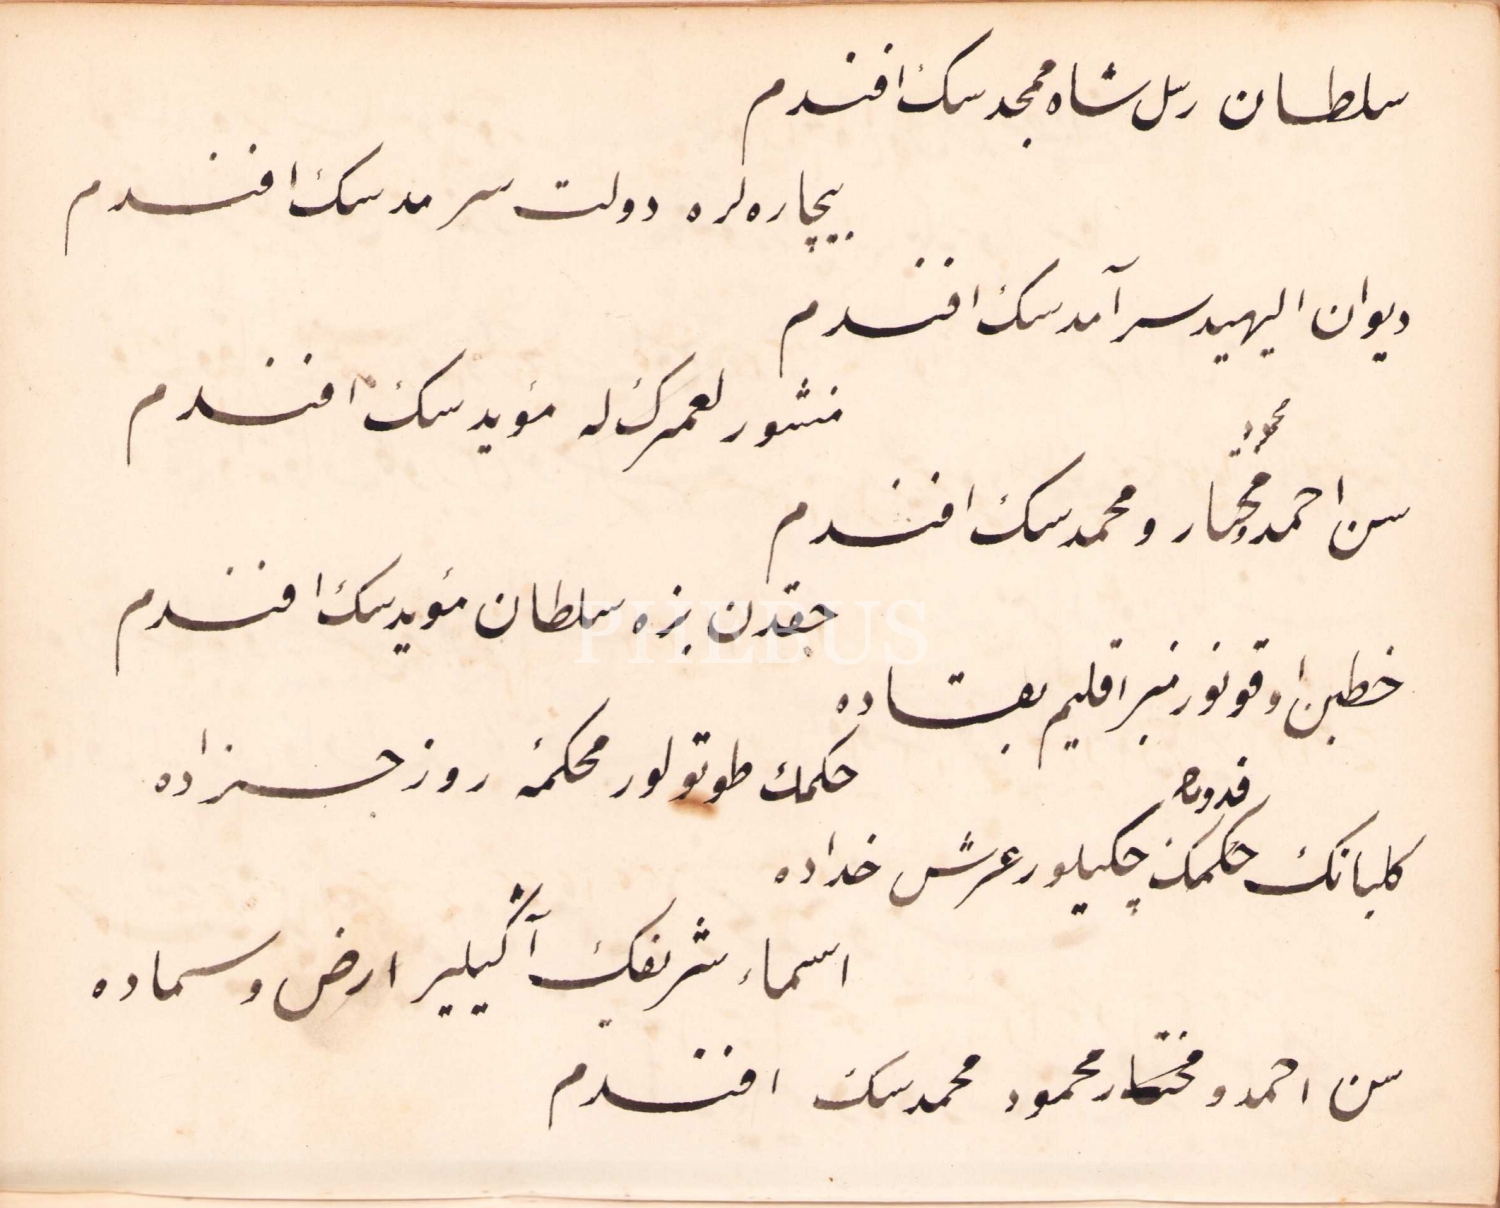 سلطان رسل شاه ممجدسك افندم
بیچاره‌لره دولت سرمدسك افندم
دیوان الهیده سرآمدسك افندم
منشور لعمرك‌له مؤیدسك افندم
محمود
سن احمد و مختار و محمدسك افندم
حقدن بزه سلطان مؤیدسك افندم
خطبه‌ن اوقونور منبر اقلیم بقاده
حكمك طوتولور محكمهٔ روز جزاده
قدومك
كلبانك حكمك چكیلور عرش خداده
اسماء شریفك آكیلیر ارض و سماده
سن احمد و مختار محمود محمدسك افندم
PHEBUS